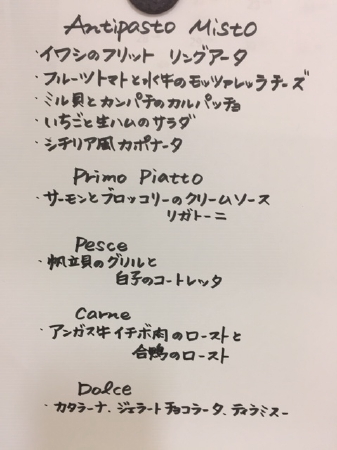 Antipasto Misto
・イワシのフリット リングアータ
・フルーツトマトと水牛のモッツァレッラチーズ
・ミル貝とカンパチのカルパッチョ
・いちごと生ハムのサラダ
・シチリア風カポナータ
Primo Piatto
・サーモンとブロッコリーのクリームソース
リガトーニ
Pesce
・帆立貝のグリルと
白子のコートレッタ
Carne
・アンガス牛イチボ肉のローストと
合鴨のロースト
Dolce
・カタラーナ、ジェラートチョコラータ、ティラミスー